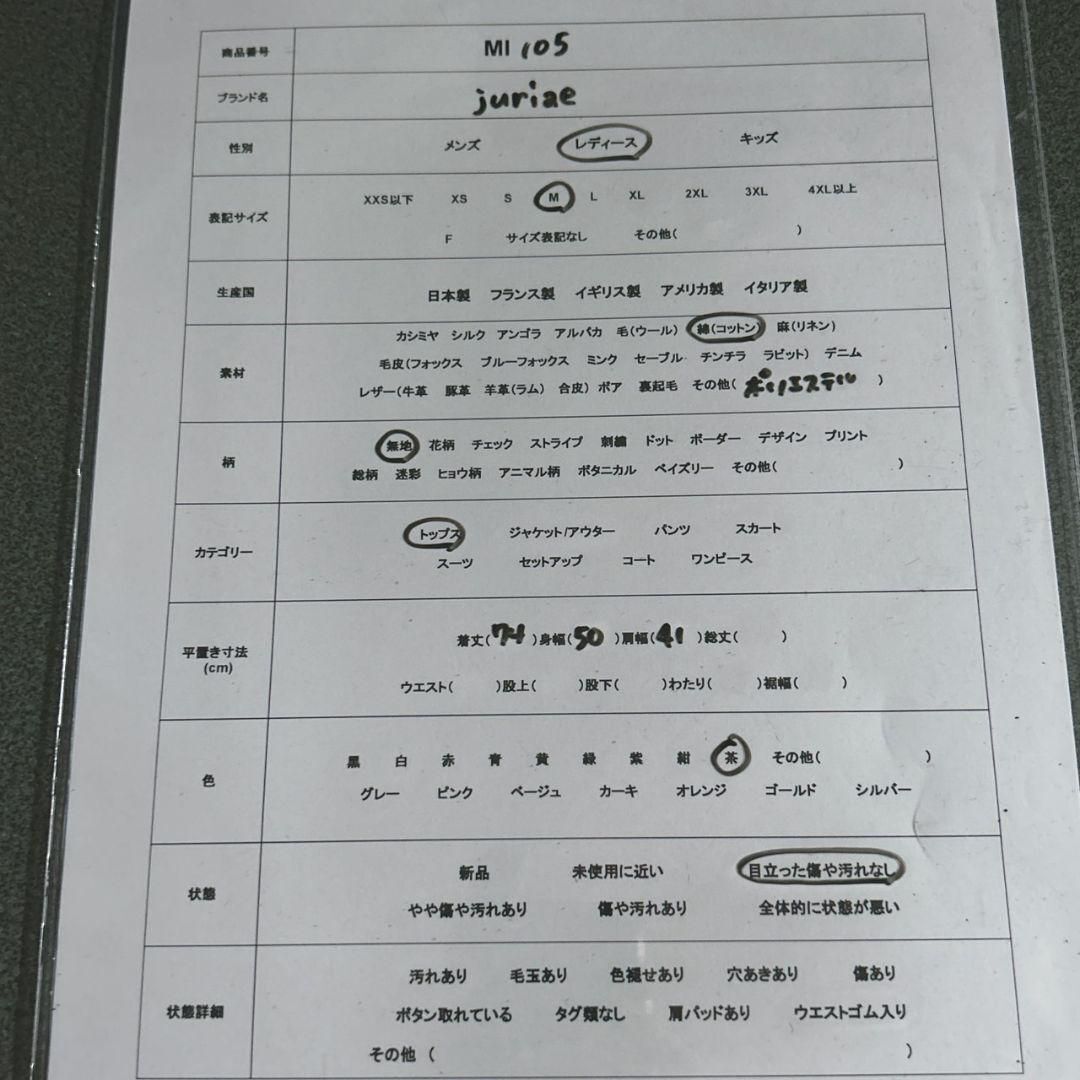 商品番号 MI 105
ブランド名 juriae
性別 メンズ レディース キッズ
表記サイズ XXS以下 XS S M L XL 2XL 3XL 4XL以上
F サイズ表記なし その他( )
生産国 日本製 フランス製 イギリス製 アメリカ製 イタリア製
素材 カシミヤ シルク アンゴラ アルパカ 毛(ウール) 綿(コットン) 麻(リネン)
毛皮(フォックス ブルーフォックス ミンク セーブル チンチラ ラビット) デニム
レザー(牛革 豚革 羊革(ラム) 合皮) ボア 裏起毛 その他( ポリエステル )
柄 無地 花柄 チェック ストライプ 刺繍 ドット ボーダー デザイン プリント
総柄 迷彩 ヒョウ柄 アニマル柄 ボタニカル ペイズリー その他( )
カテゴリー トップス ジャケット/アウター パンツ スカート
スーツ セットアップ コート ワンピース
平置き寸法
(cm)
着丈( 74 )身幅( 50 )肩幅( 41 )総丈( )
ウエスト( )股上( )股下( )わたり( )裾幅( )
色 黒 白 赤 青 黄 緑 紫 紺 茶 その他( )
グレー ピンク ベージュ カーキ オレンジ ゴールド シルバー
状態 新品 未使用に近い 目立った傷や汚れなし
やや傷や汚れあり 傷や汚れあり 全体的に状態が悪い
状態詳細 汚れあり 毛玉あり 色褪せあり 穴あきあり 傷あり
ボタン取れている タグ類なし 肩パッドあり ウエストゴム入り
その他 ( )